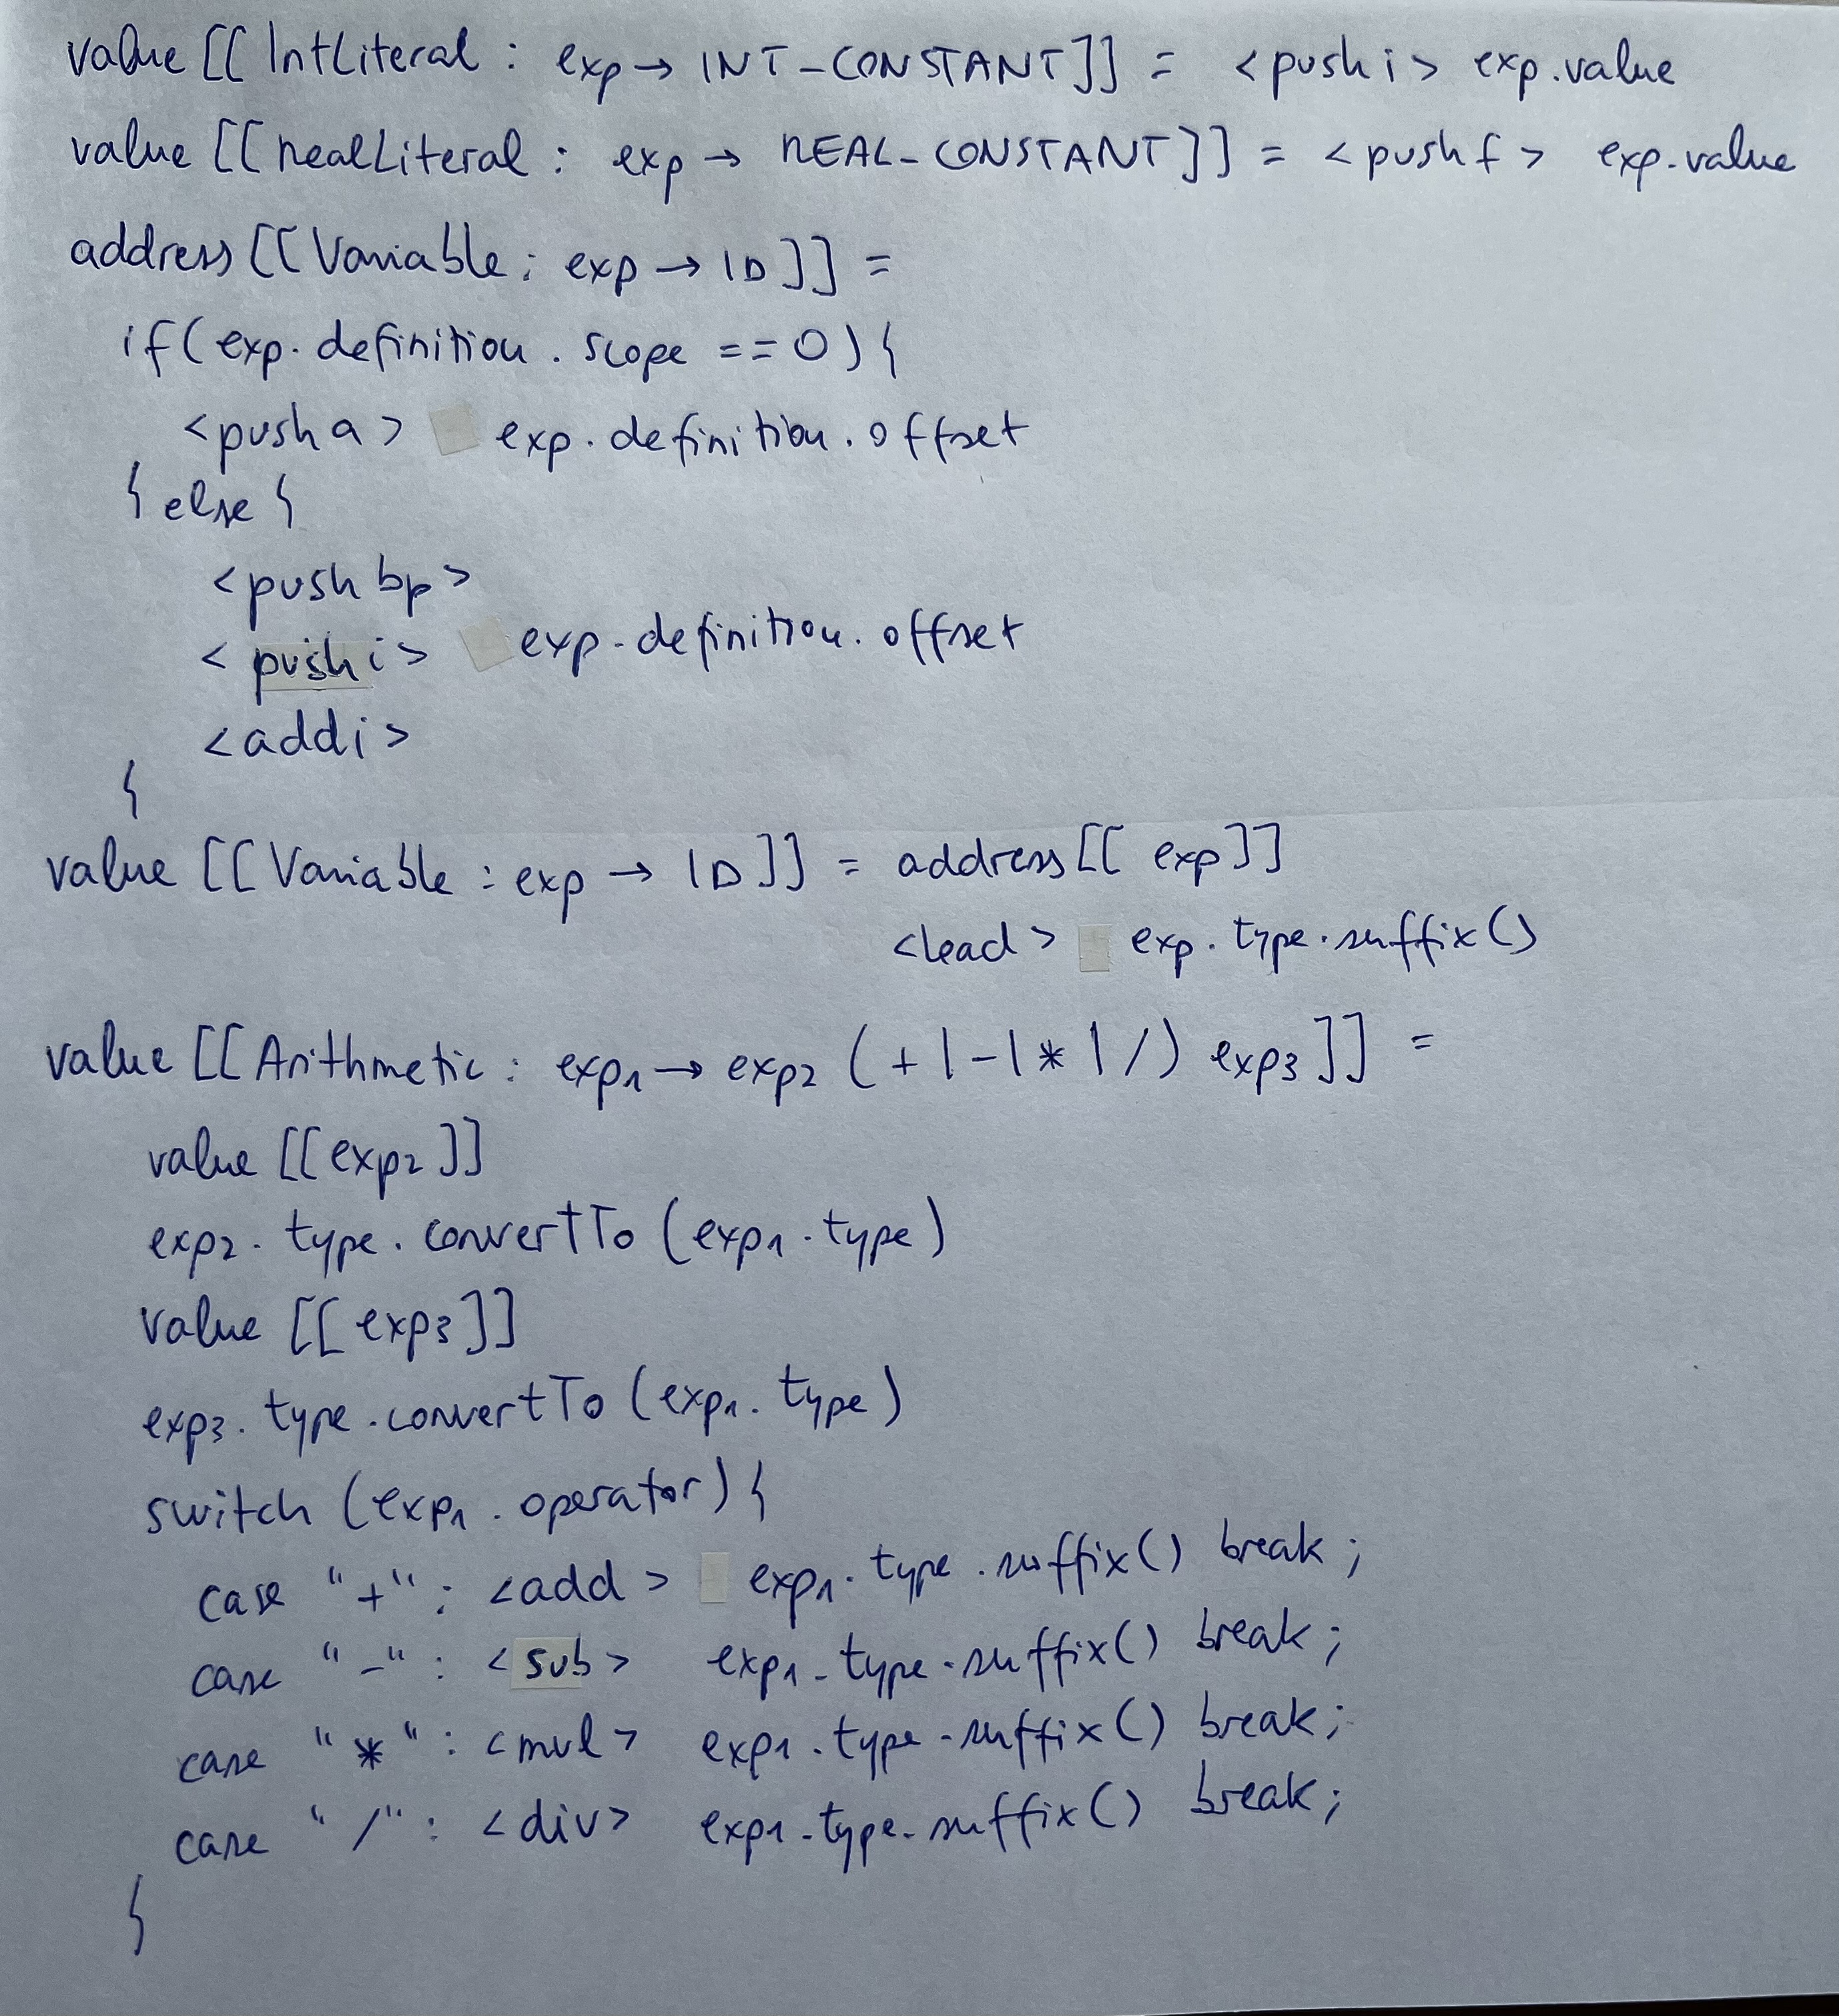 value [[ IntLiteral : exp → INT-CONSTANT]] = <pushi> exp.value
value [[ RealLiteral : exp → REAL-CONSTANT]] = <pushf> exp.value
address [[ Variable : exp → ID ]] =
if (exp.definition.scope == 0) {
<pusha> exp.definition.offset
} else {
<push bp>
<pushi> exp.definition.offset
<addi>
}
value [[ Variable : exp → ID ]] = address [[ exp ]]
<load> exp.type.suffix()
value [[ Arithmetic : exp1 → exp2 (+|-|*|/) exp3 ]] =
value [[exp2 ]]
exp2.type.convertTo (exp1.type)
value [[ exp3 ]]
exp3.type.convertTo (exp1.type)
switch (exp1.operator) {
case "+" : <add> exp1.type.suffix() break;
case "-" : <sub> exp1.type.suffix() break;
case "*" : <mul> exp1.type.suffix() break;
case "/" : <div> exp1.type.suffix() break;
}